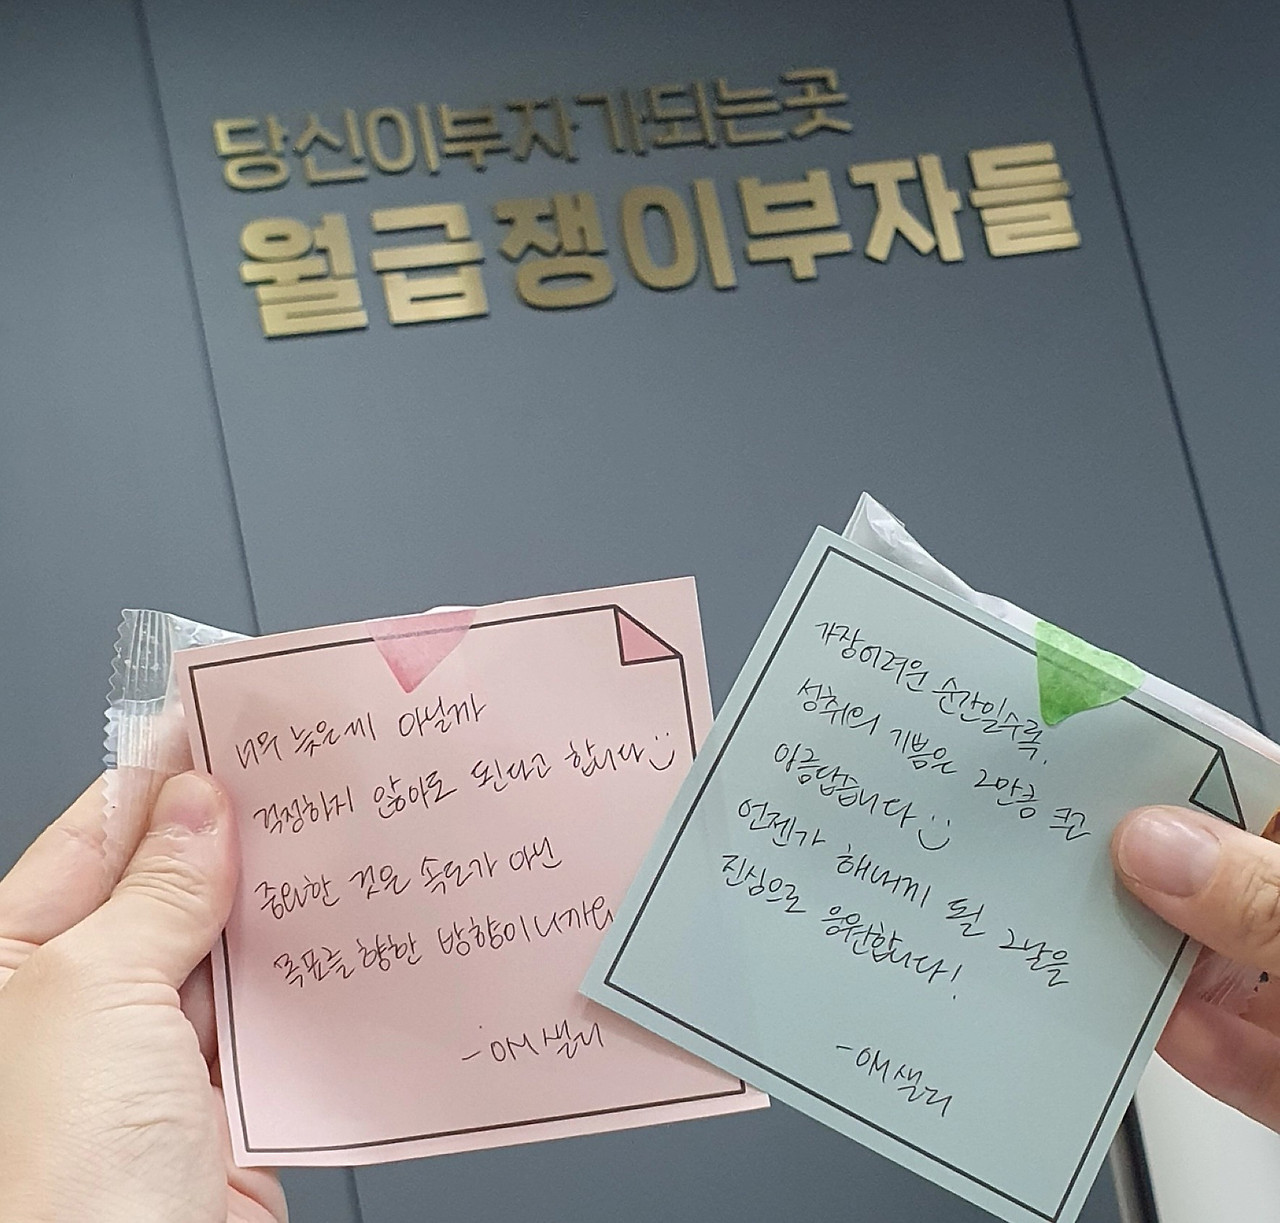 당신이부자가되는곳
월급쟁이부자들
너무 늦은게 아닐까
걱정하지 않아도 된다고 합니다 :)
중요한 것은 속도가 아닌
목표를 향한 방향이니까요
- OM 샐리
가장 어려운 순간일수록,
성취의 기쁨은 그만큼 크고
아름답습니다 :)
언젠가 해내게 될 그날을
진심으로 응원합니다!
- OM 샐리